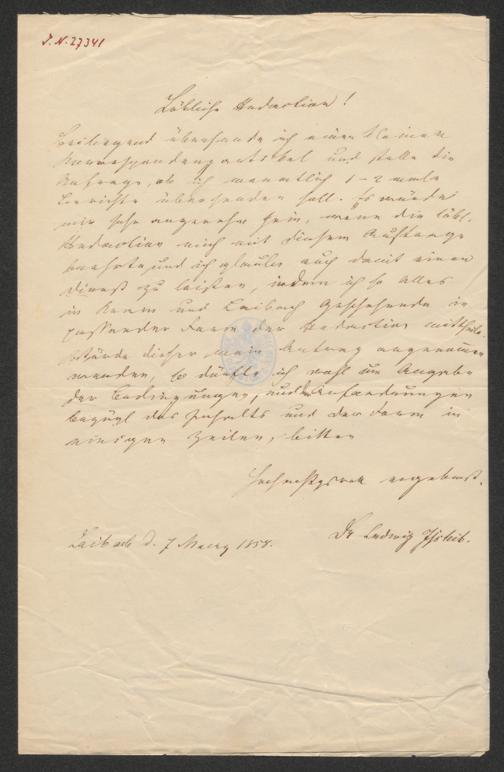 I.N.27341
Löbliche Redaction!
Beiliegend übersende ich einen kleinen
Korrespondenzartikel und stelle die
Anfrage, ob ich monatlich 1-2 male
Berichte übersenden soll. Es würde
mir sehr angenehm sein, wenn die löbl.
Redaction mich mit diesem Auftrage
beehrte, und ich glaube auch damit einen
Dienst zu leisten, indem ich so alles
in Krain und Laibach Geschehende in
passender Form der Redaction mittheile.
Würde dieser mein Antrag angenommen
werden, so dürfte ich wohl um Angabe
der Bedingungen, und Anforderungen
bezügl des Inhalts und der Form in
einigen Zeilen, bitten
Hochachtungsvoll ergebenst.
Laibach d. 7 Maerz 1858.
Dr Ludwig